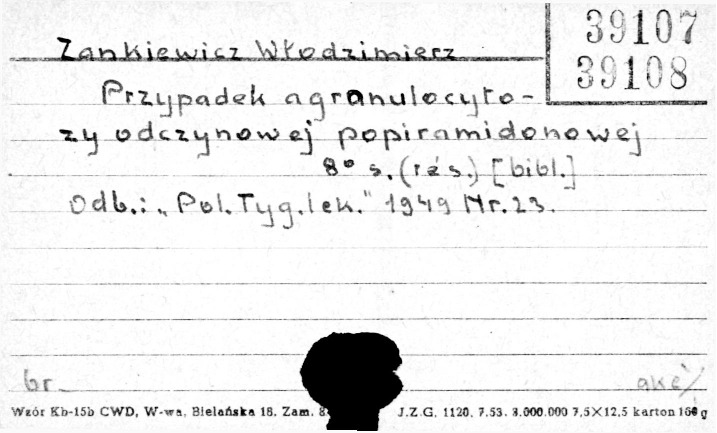 39107
39108
Zankiewicz Włodzimierz
Przypadek agranulocyto-
zy odczynowej popiramidonowej
8° s. (rés.) [bibl.]
Odb.: „Pol. Tyg. lek." 1949 Nr. 23.
br.
akc
Wzór Kb-15b CWD, W-wa, Bielańska 18. Zam. J.Z.G. 1120. 7.53. 3.000.000 7,5×12,5 karton 160 g